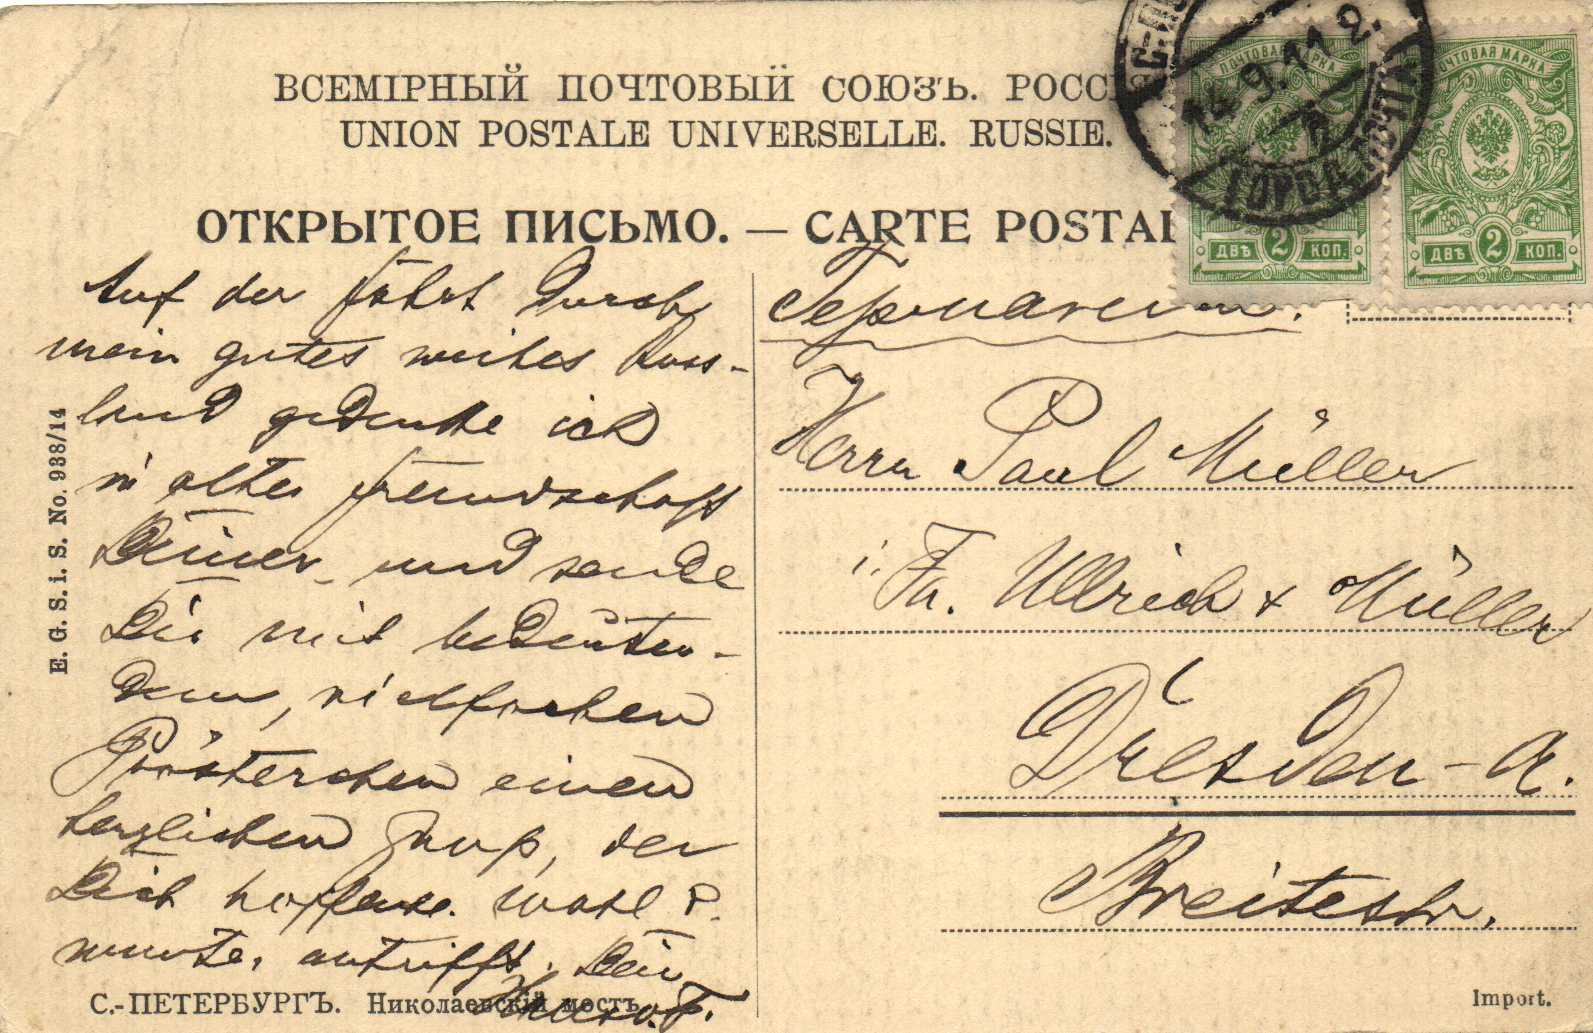 ВСЕМІРНЫЙ ПОЧТОВЫЙ СОЮЗЪ. РОССІЯ
UNION POSTALE UNIVERSELLE. RUSSIE.
ОТКРЫТОЕ ПИСЬМО. — CARTE POSTAL
ПОЧТОВАЯ МАРКА
ПОЧТОВАЯ МАРКА
ДВѢ 2 КОП.
ДВѢ 2 КОП.
14.9.11
ГОРОД. ПОЧТА
Auf der Fahrt durch
mein gutes weites Russ-
land gedenke ich
in alter Freundschaft
Deiner und sende
Dir mit bedeuten-
dem, vielfachen
einen
herzlichen Gruß, der
Dich hoffentl. wohl &
munter antrifft. Dein
Германия.
Herrn Paul Müller
i. Fa. Ullrich & Müller
Dresden-A.
Breitestr.
E. G. S. i. S. No. 938/14
С.-ПЕТЕРБУРГЪ. Николаевскій мостъ.
Import.